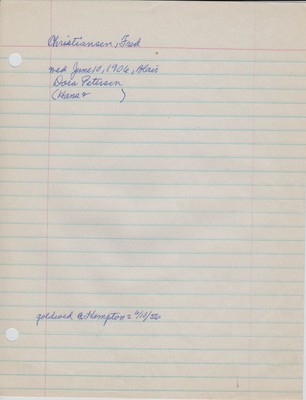 Christiansen, Fred
med June 10, 1906, Blair
Dora Petersen
(Hans &        )
goldwed @ Thompton = 6/10/56